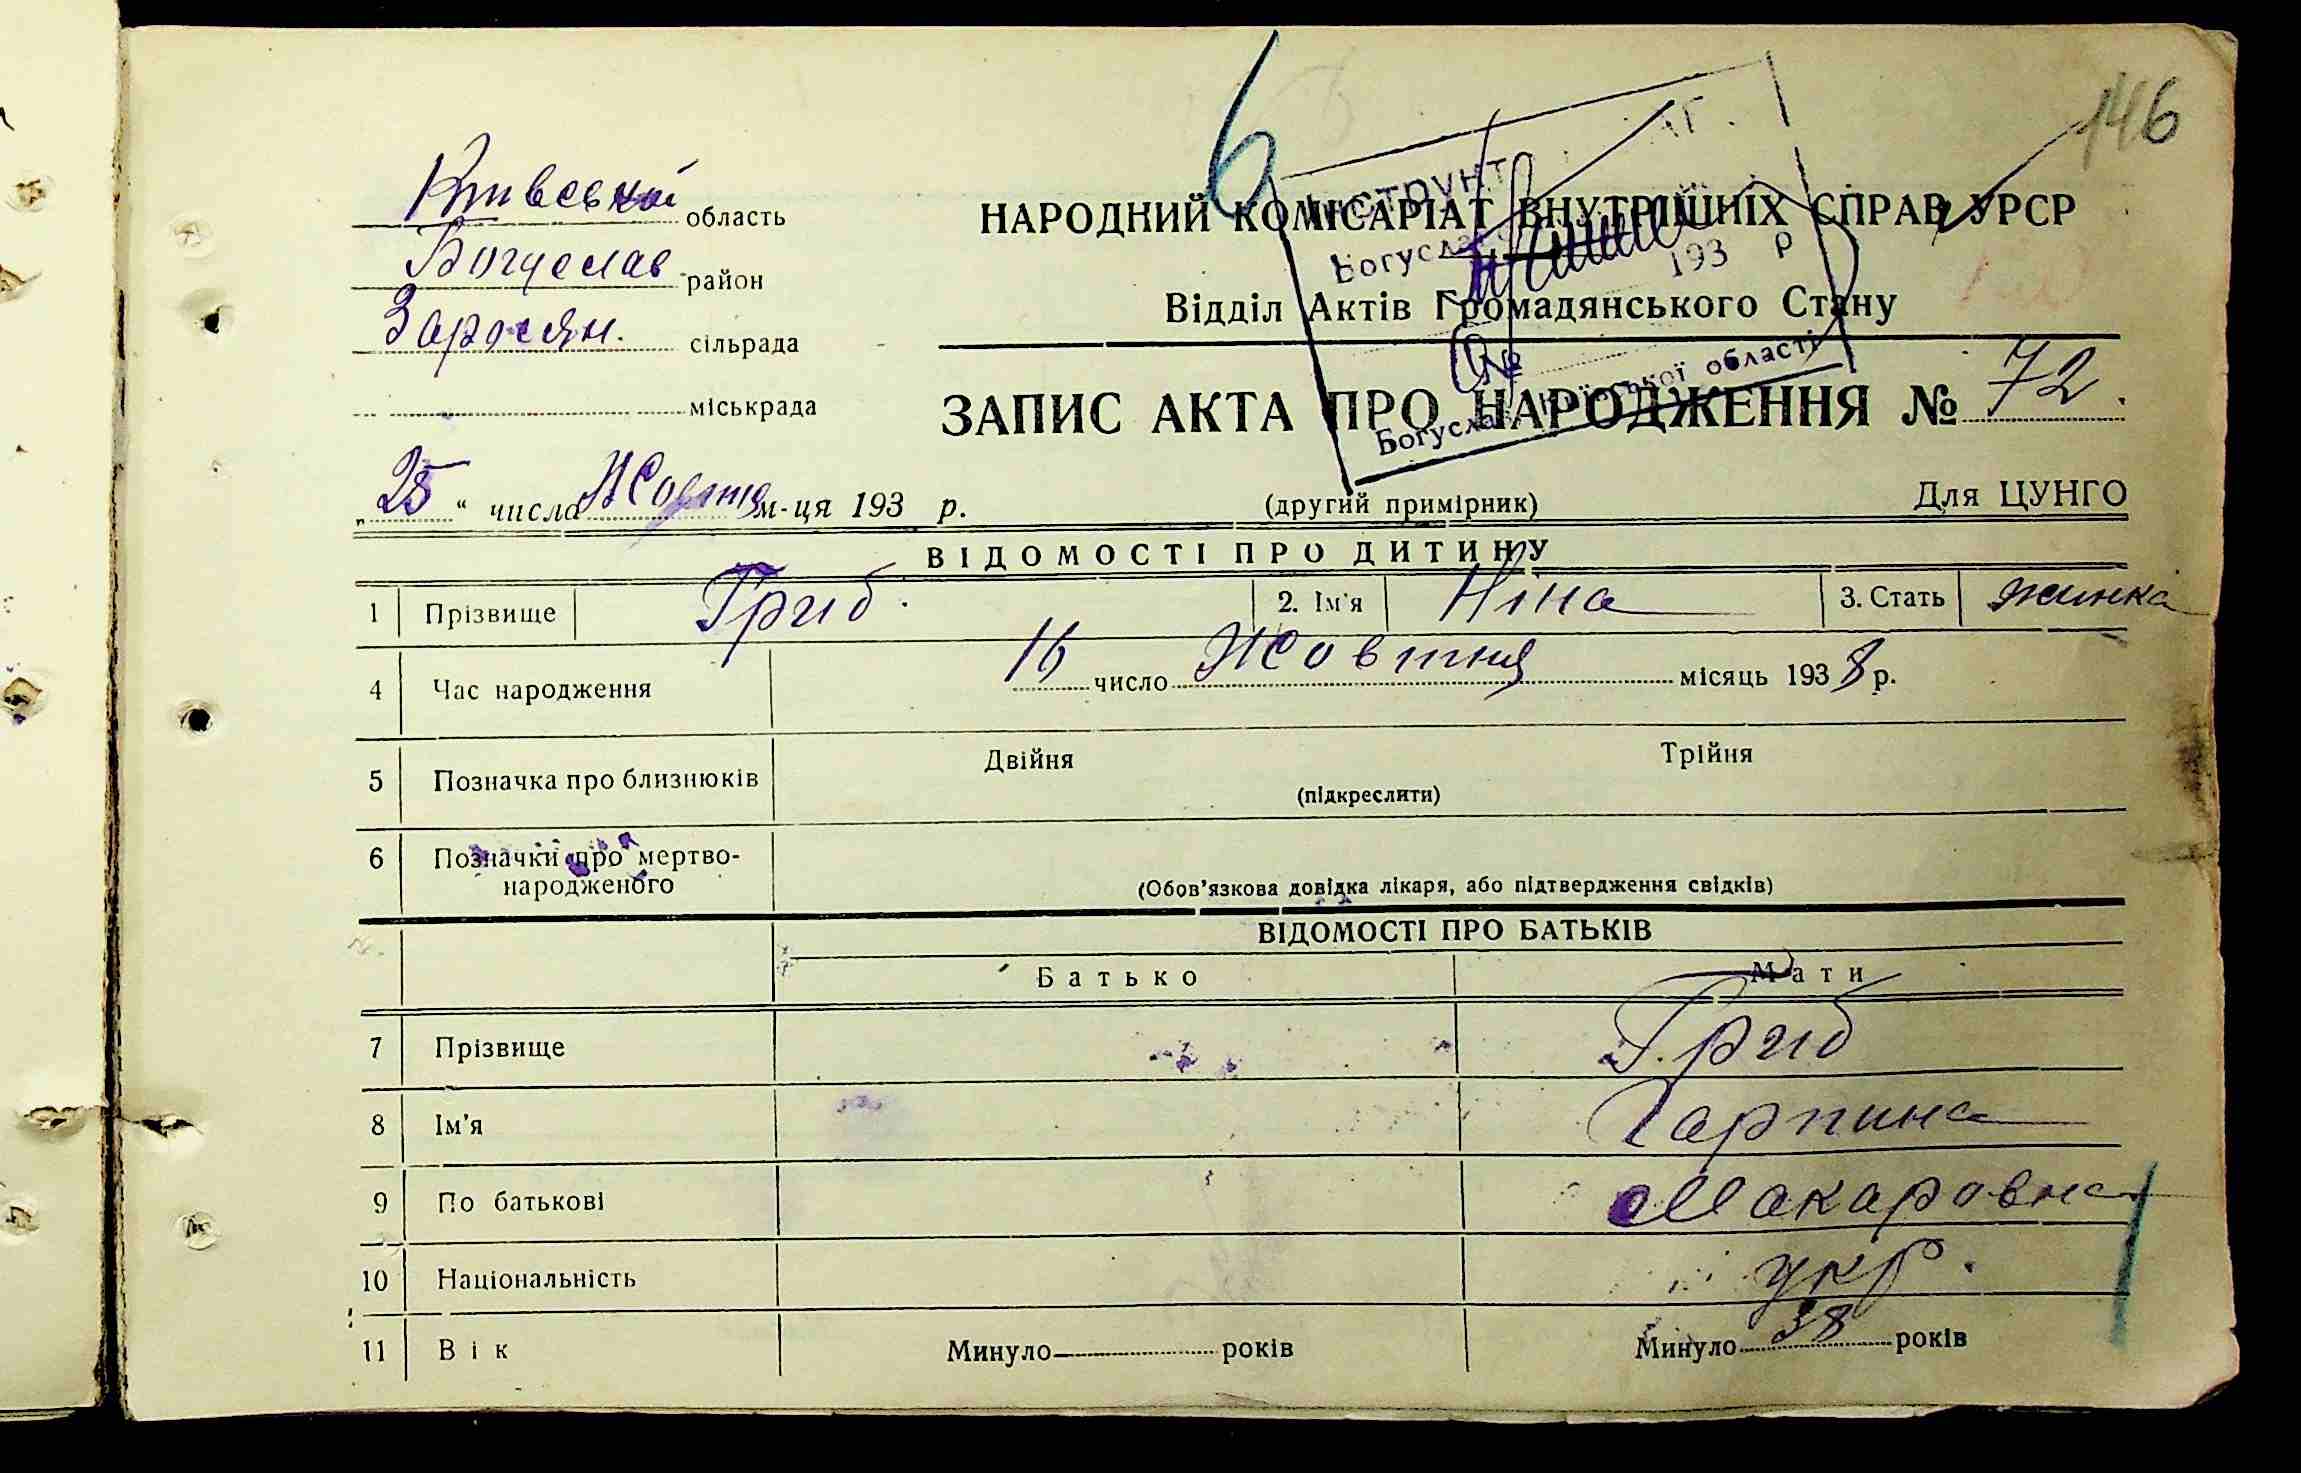 146
6
Київської область
Богуслав район
Заросян. сільрада
міськрада
НАРОДНИЙ КОМІСАРІАТ ВНУТРІШНІХ СПРАВ УРСР
Відділ Актів Громадянського Стану
Богуслав
193 р
№
Богуслав Київської області
ЗАПИС АКТА ПРО НАРОДЖЕННЯ № 72.
„25“ числа Жовтня м-ця 193 р.
(другий примірник)
Для ЦУНГО
ВІДОМОСТІ ПРО ДИТИНУ
1 Прізвище Гриб. 2. Ім'я Ніна 3. Стать жинка
4 Час народження 16 число Жовтня місяць 1938 р.
5 Позначка про близнюків Двійня Трійня
(підкреслити)
6 Позначки про мертво-
народженого
(Обов'язкова довідка лікаря, або підтвердження свідків)
ВІДОМОСТІ ПРО БАТЬКІВ
Батько Мати
7 Прізвище Гриб
8 Ім'я Гарпина
9 По батькові Макаровна
10 Національність укр.
11 Вік Минуло років Минуло 38 років